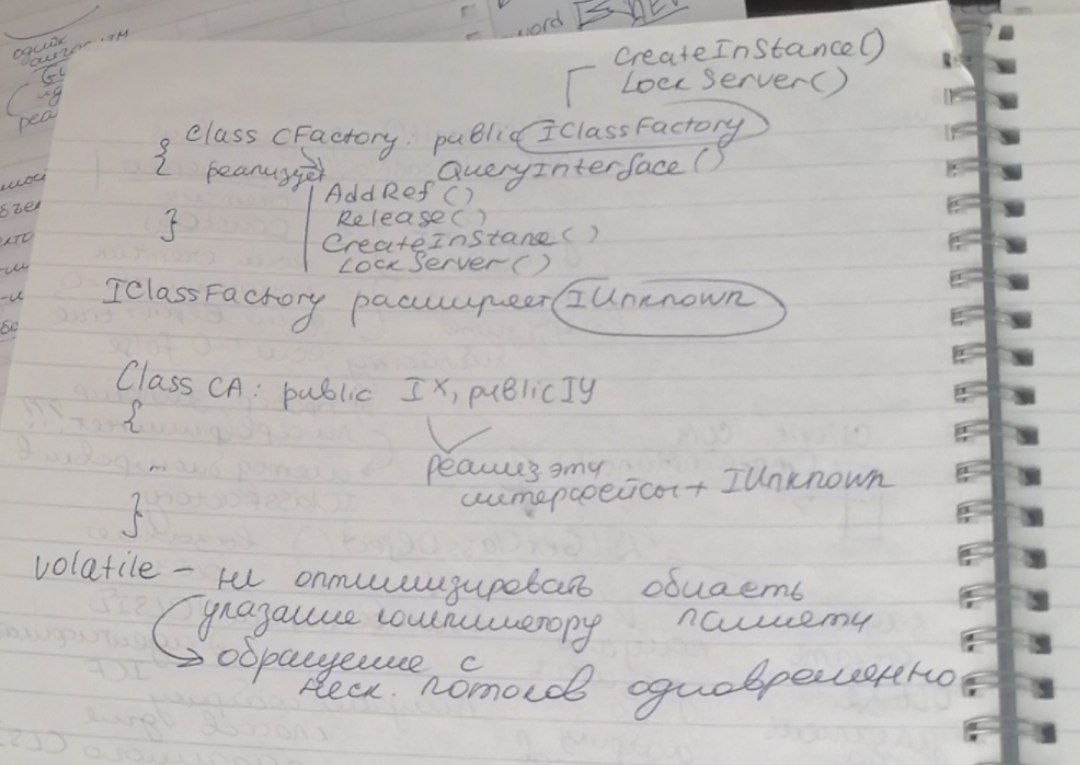 CreateInstance()
LockServer()
Class CFactory: public IClassFactory
{ реализует QueryInterface()
AddRef()
Release()
} CreateInstane()
LockServer()
IClassFactory расширяет IUnknown
Class CA: public IX, public IY
{
реализ эту
интерфейсы + IUnknown
}
volatile – не оптимизировать область
указание компилятору памяти
обращение с
неск. потоков одновременно
word